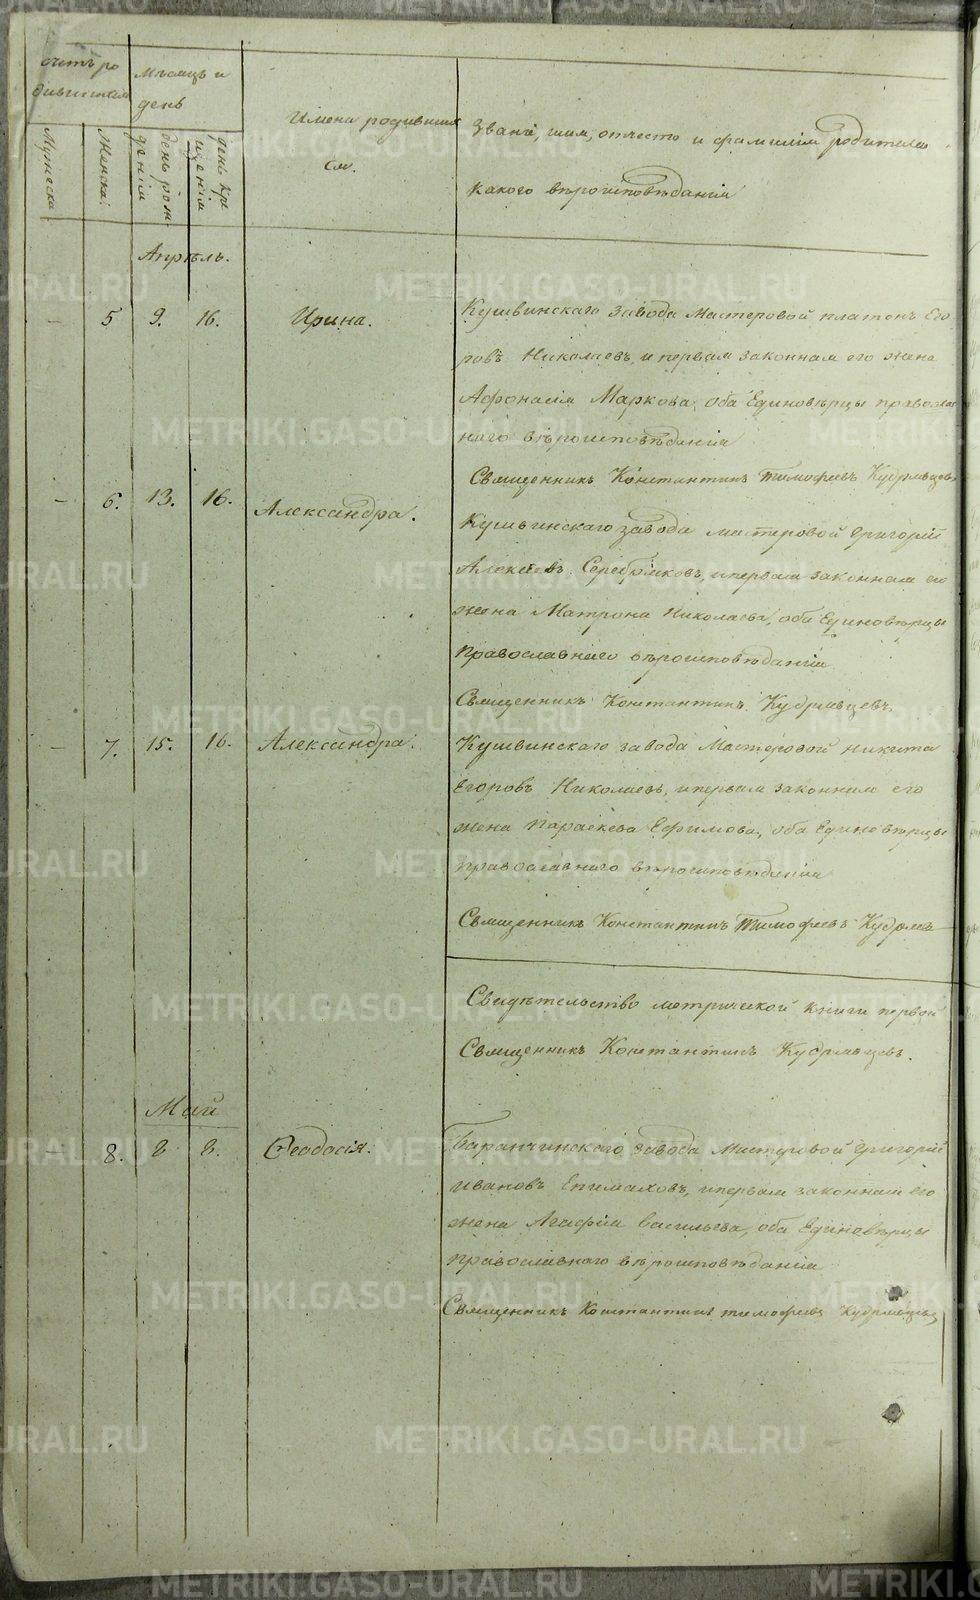 счетъ ро
дившихся
мѣсяцъ и
день
Мужеска.
Женска.
день рож
денія
день кре
щенія
Имена родивших
ся.
Званіе, имя, отчество и фамилія родителей
какого вѣроисповѣданія
Апрѣль.
- 5 9. 16. Ирина.
Кушвинскаго завода Мастеровой платонъ Его
ровъ Николаевъ, и первая законная его жена
Афонасія Маркова, оба Единовѣрцы правосла
наго вѣроисповѣданія
Священникъ Константинъ Тимофеевъ Кудрявцевъ
- 6. 13. 16. Александра.
Кушвинскаго завода мастеровой Григорій
Алексѣевъ Серебряковъ, и первая законная его
жена Матрона Николаева, оба Единовѣрцы
Православнаго вѣроисповѣданія
Священникъ Константинъ Кудрявцевъ
- 7. 15. 16. Александра.
Кушвинскаго завода Мастеровой никита
Егоровъ Николаевъ, и первая законная его
жена Параскева Ефимова, оба Единовѣрцы
православнаго вѣроисповѣданія
Священникъ Константинъ Тимофеевъ Кудрявъ
Свидѣтельство метрической книги первой
Священникъ Константинъ Кудрявцевъ.
Май
- 8. 8 8. Феодосія.
Баранчинскаго завода Мастеровой Григорій
Ивановъ Епимаховъ, и первая законная его
жена Агафія васильева, оба Единовѣрцы
православнаго вѣроисповѣданія
Священникъ Константинъ тимофеевъ Кудрявцевъ
METRIKI.GASO-URAL.RU